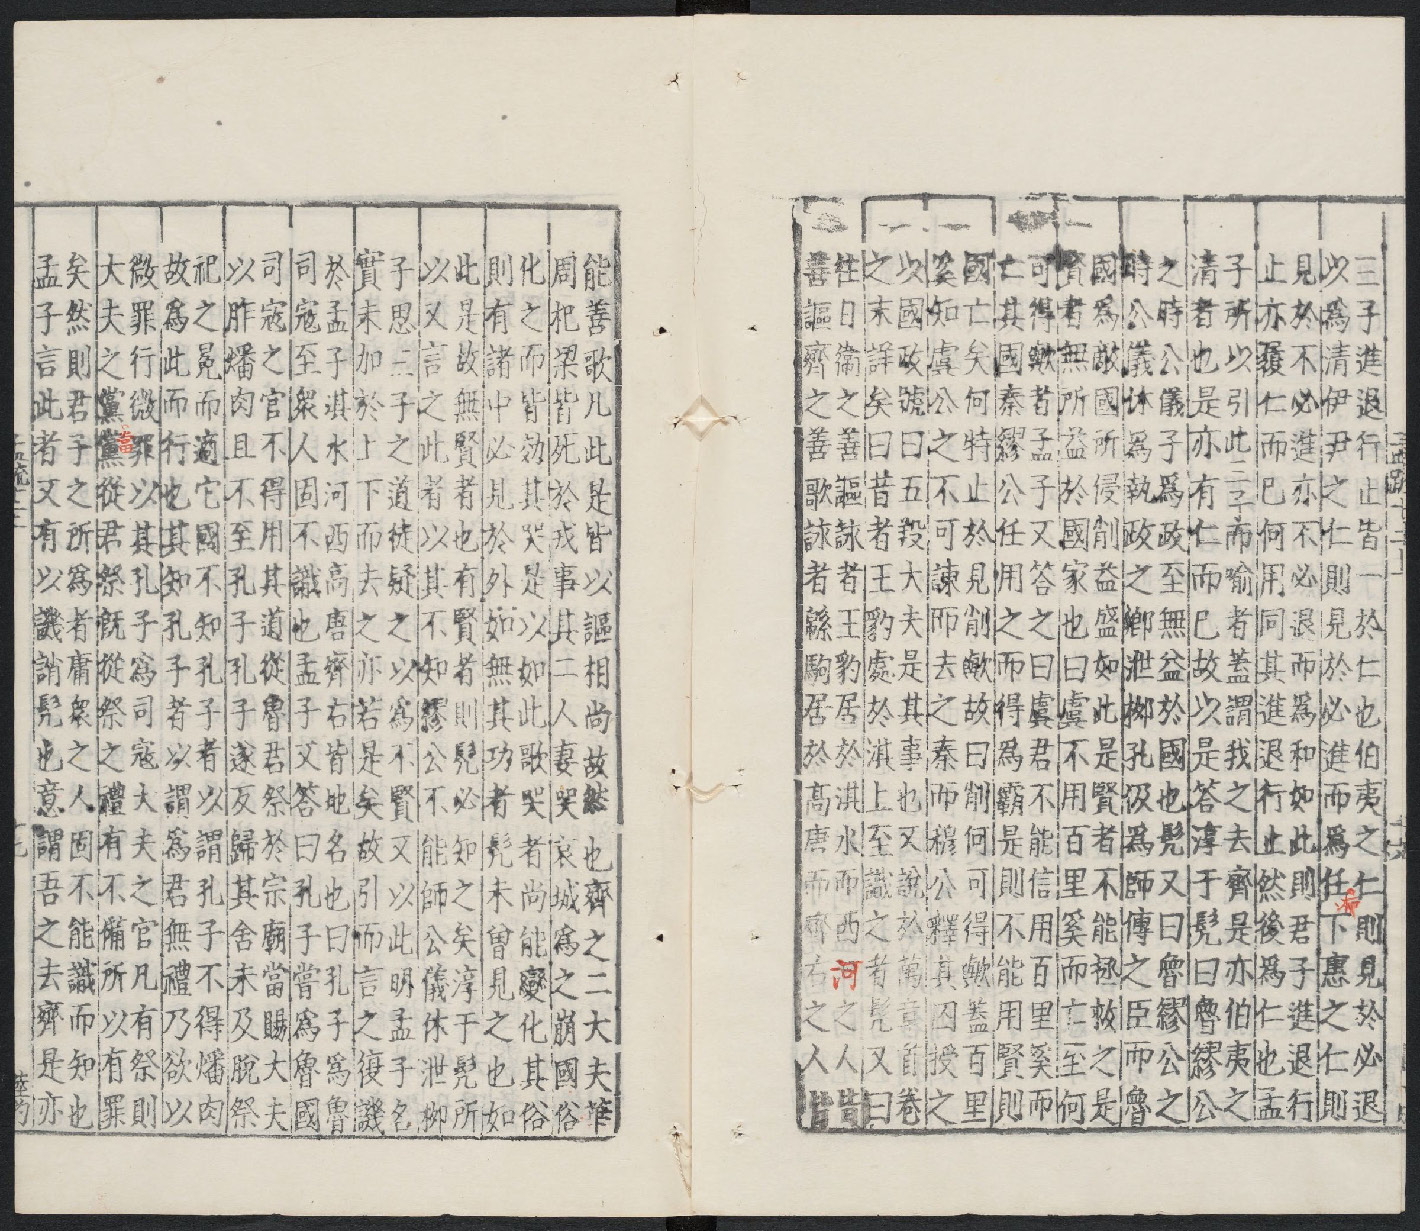 三子進退行止皆一於仁也伯夷之仁則見於必退
以爲清伊尹之仁則見於必進而爲任下惠之仁則
見於不必進亦不必退而爲和如此則君子進退行
止亦履仁而已何用同其進退行止然後爲仁也孟
子所以引此三子而喻者蓋謂我之去齊是亦伯夷之
清者也是亦有仁而已故以是答淳于髡曰魯繆公
之時公儀子爲政至無益於國也髡又曰魯繆公之
時公儀休爲執政之卿泄柳孔伋爲師傅之臣而魯
國爲敵國所侵削益盛如此是賢者不能拯救之是
賢者無所益於國家也曰虞不用百里奚而亡至何
可得歟者孟子又答之曰虞君不能信用百里奚而
亡其國秦繆公任用之而得爲霸是則不能用賢則
國亡矣何特止於見削歟故曰削何可得歟蓋百里
奚知虞公之不可諫而去之秦而穆公釋其囚授之
以國政號曰五羖大夫是其事也又說於萬章首卷
之末詳矣曰昔者王豹處於淇上至識之者髡又曰
往日衛之善謳詠者王豹居於淇水而西河之人皆
善謳齊之善歌詠者緜駒居於高唐而齊右之人皆
能善歌凡此是皆以謳相尚故然也齊之二大夫華
周杞梁皆死於戎事其二人妻哭哀城爲之崩國俗
化之而皆効其哭是以如此歌哭者尚能變化其俗
則有諸中必見於外如無其功者髡未曾見之也如
此是故無賢者也有賢者則髡必知之矣淳于髡所
以又言之此者以其不知繆公不能師公儀休泄柳
子思三子之道徒疑之以爲不賢又以此明孟子名
實未加於上下而去之亦若是矣故引而言之復譏
於孟子淇水河西高唐齊右皆地名也曰孔子爲魯
司寇至衆人固不識也孟子又答曰孔子嘗爲魯國
司寇之官不得用其道從魯君祭於宗廟當賜大夫
以胙燔肉且不至孔子孔子遂反歸其舍未及脫祭
祀之冕而適它國不知孔子者以謂孔子不得燔肉
故爲此而行也其知孔子者以謂爲君無禮乃欲以
微罪行微罪以其孔子爲司寇大夫之官凡有祭則
大夫之黨黨從君祭既從祭之禮有不備所以有罪
矣然則君子之所爲者庸衆之人固不能識而知也
孟子言此者又有以譏誚髡也意謂吾之去齊是亦